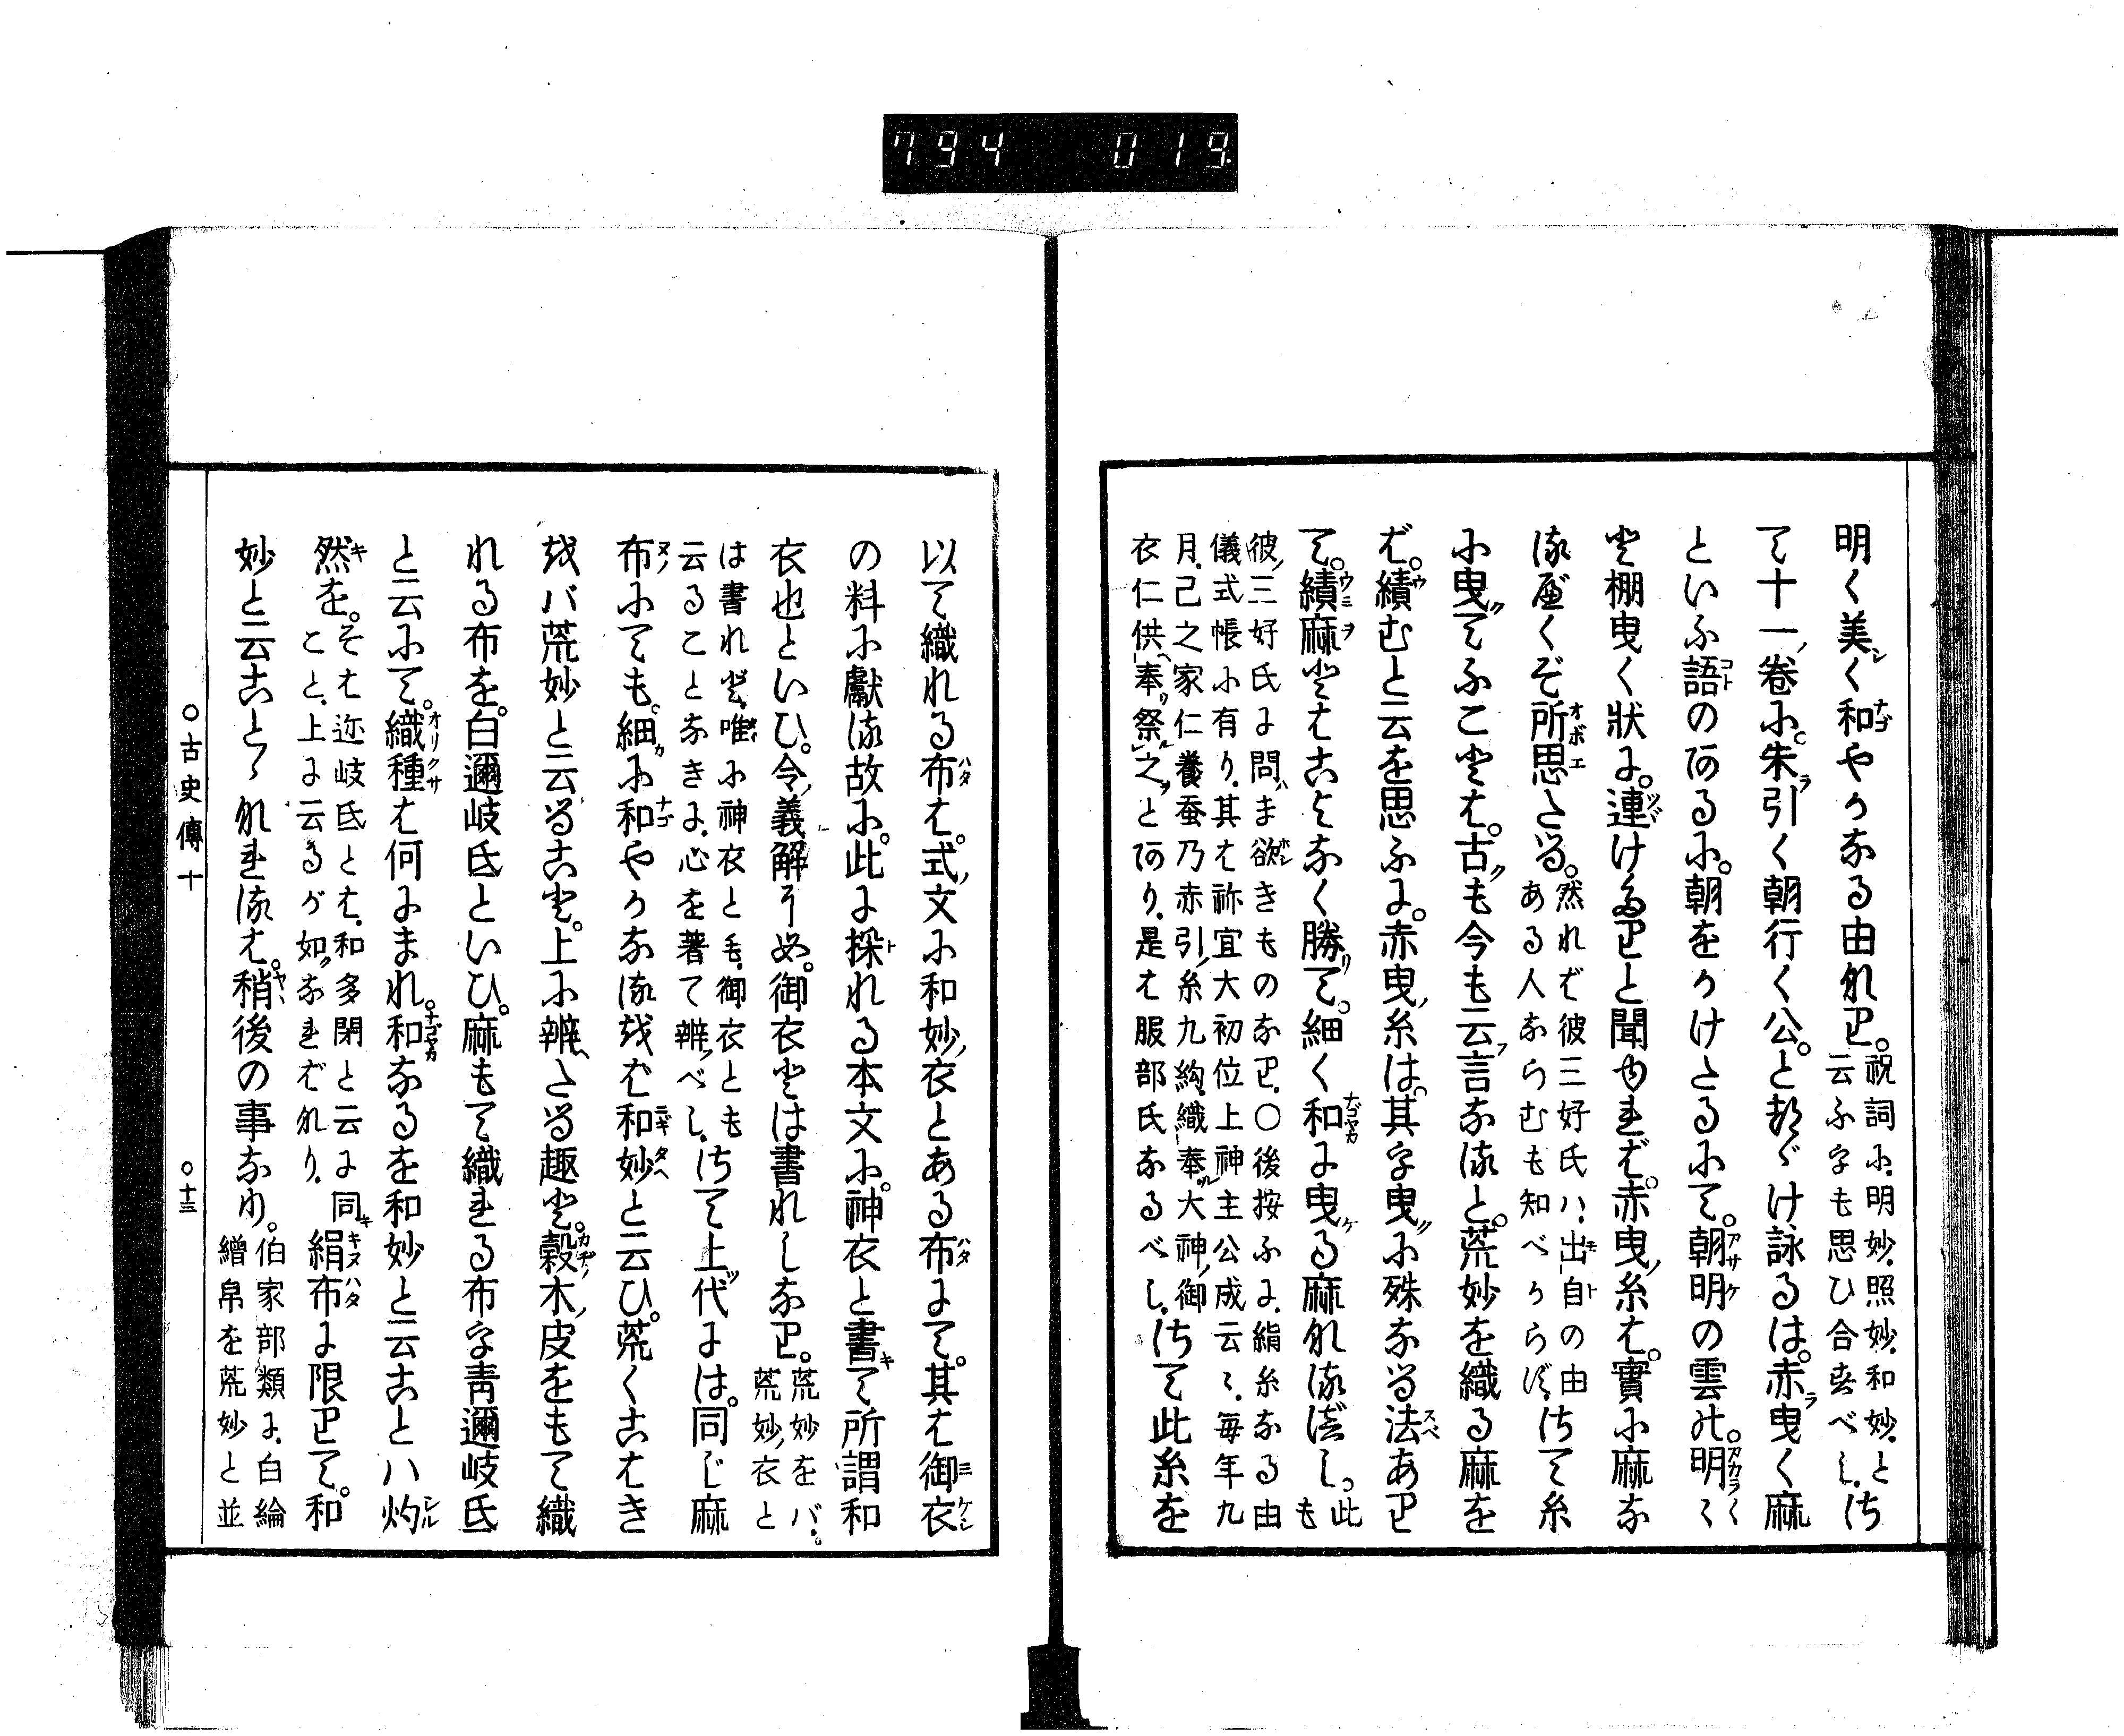 794 019
明く美く和やかなる由なり。祝詞に、明妙、照妙、和妙、と云ふ字も思ひ合すべし、さ
て十一卷に、朱引く朝行く公。とつゞけ詠るは。赤曳く麻
といふ語のあるに。朝をかけたるにて。朝明の雲の。明々
と棚曳く狀に。連けたりと聞ゆれば。赤曳糸は。實に麻な
るべくぞ所思たる。然れど彼三好氏ハ、出自の由ある人ならむも知べからず、さて糸
に曳てふことは。古も今も云言なると。荒妙を織る麻を
ば。績むと云を思ふに。赤曳糸は。其字曳に殊なる法あり
て。績麻とはことなく勝て。細く和に曳る麻なるべし。此も
彼三好氏に問ま欲きものなり、〇後按ふに、絹糸なる由
儀式帳に有り、其は祢宜大初位上神主公成云々、毎年九
月、己之家仁養蚕乃赤引糸九絇、織奉大神御
衣仁供奉祭之、とあり、是は服部氏なるべし、さて此糸を
以て織れる布は。式文に和妙衣とある布にて。其は御衣
の料に獻る故に。此に採れる本文に。神衣と書て所謂和
衣也といひ。令義解にも。御衣とは書れしなり。荒妙をバ。荒妙衣と
は書れど、唯に神衣とも、御衣とも云ることなきに、心を著て辨べし、さて上代には。同じ麻
布にても。細に和やかなるをば和妙と云ひ。荒くこはき
をバ荒妙と云ること。上に辨たる趣と。穀木皮をもて織
れる布を。白邇岐氐といひ。麻もて織れる布字靑邇岐氐
と云にて。織種は何にまれ。和なるを和妙と云ことハ灼
然を。そは迩岐氐とは、和多閇と云に同きこと、上に云るが如なればなり、絹布に限りて。和
妙と云ことゝなれるは。稍後の事なり。伯家部類に、白綸繒帛を荒妙と並
〇古史傳十 〇十三